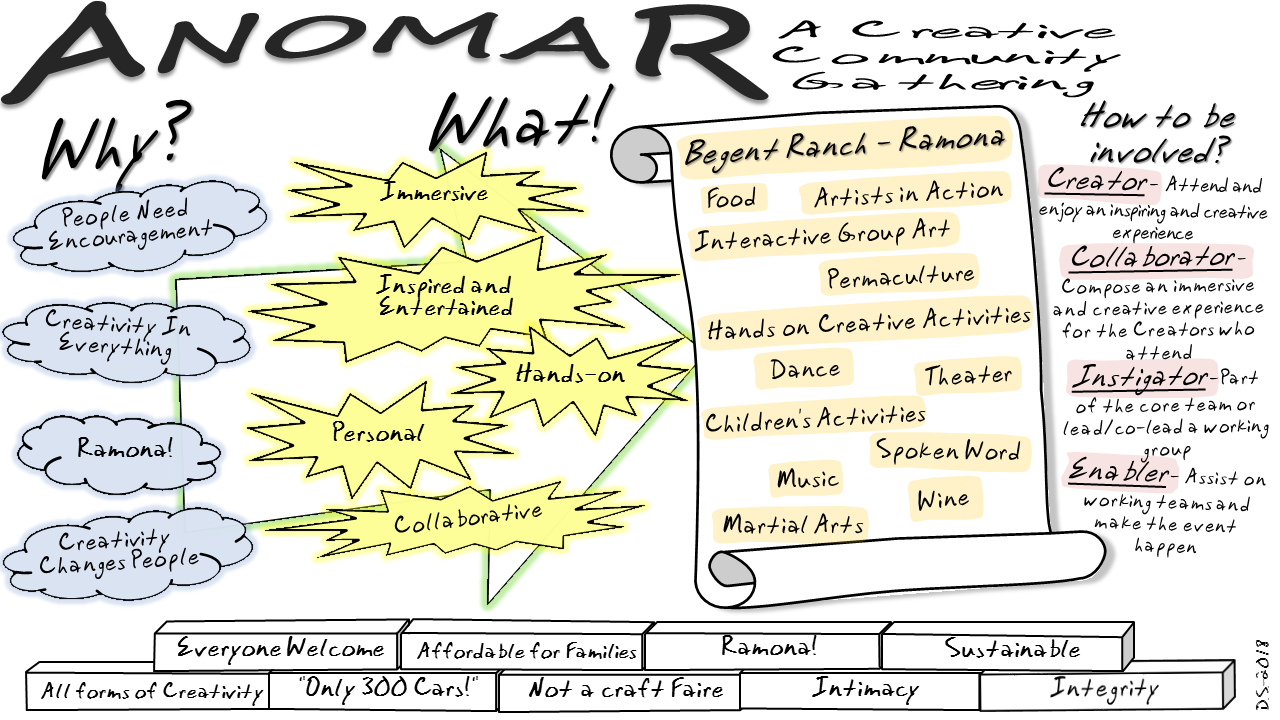 ANOMAR
A Creative
Community
Gathering
Why?
People Need
Encouragement
Creativity In
Everything
Ramona!
Creativity
Changes People
What!
Immersive
Inspired and
Entertained
Hands-on
Personal
Collaborative
Begent Ranch - Ramona
Food
Artists in Action
Interactive Group Art
Permaculture
Hands on Creative Activities
Dance
Theater
Children's Activities
Spoken Word
Music
Wine
Martial Arts
How to be
involved?
Creator- Attend and
enjoy an inspiring and creative
experience
Collaborator-
Compose an immersive
and creative experience
for the Creators who
attend
Instigator-Part
of the core team or
lead/co-lead a working
group
Enabler- Assist on
working teams and
make the event
happen
Everyone Welcome
Affordable for Families
Ramona!
Sustainable
All forms of Creativity
"Only 300 Cars!"
Not a craft Faire
Intimacy
Integrity
DS-2018